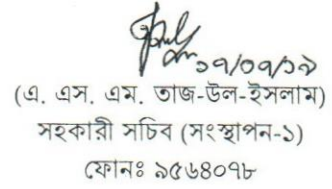 ১৭/০৭/১৯
(এ. এস. এম. তাজ-উল-ইসলাম)
সহকারী সচিব (সংস্থাপন-১)
ফোনঃ ৯৫৬৪০৭৮